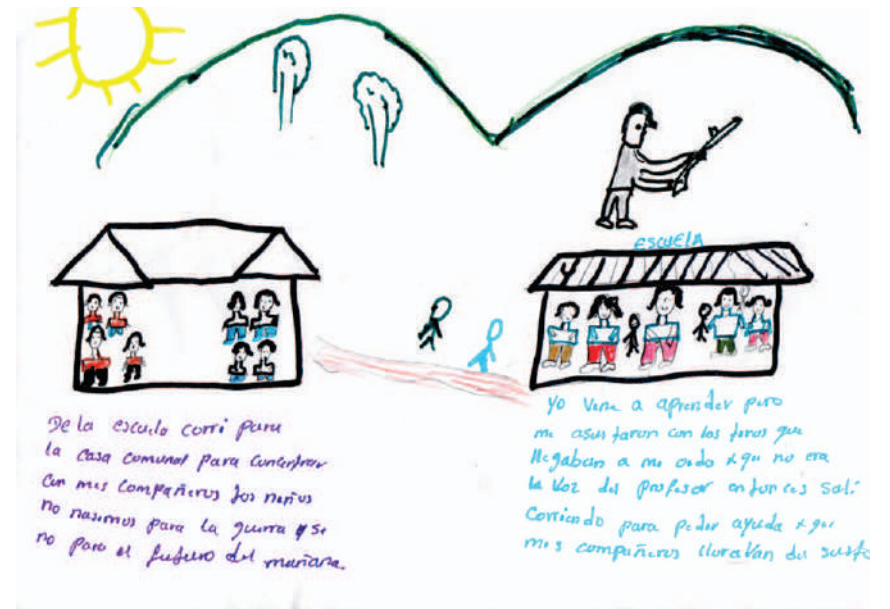 ESCUELA
De la escuela corri para
la casa comunal para concentrar
con mis compañeros los niños
no nasimos para la guerra y si
no para el futuro del mañana.
yo vene a aprender pero
me asustaron con los tiros que
llegaban a mi oido x que no era
la voz del profesor entonces sali
corriendo para pedir ayuda x que
mis compañeros lloravan du susto